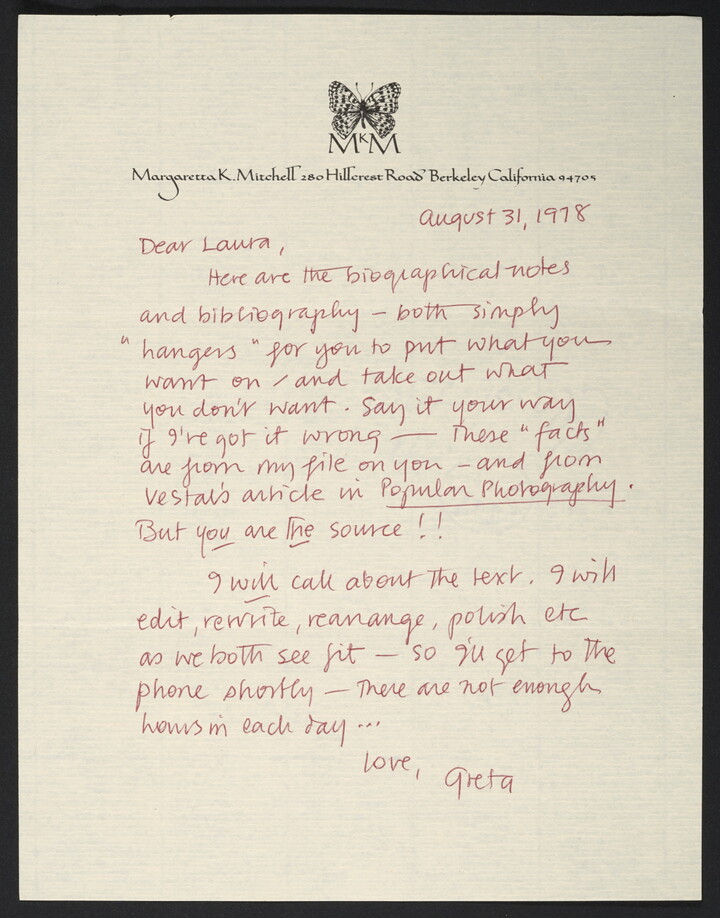 MKM
Margaretta K. Mitchell 280 Hillcrest Road Berkeley California 94705
August 31, 1978
Dear Laura,
Here are the biographical notes
and bibliography – both simply
"hangers" for you to put what you
want on / and take out what
you don't want. Say it your way
if I've got it wrong — These "facts"
are from my file on you – and from
Vestal's article in Popular Photography.
But you are the source !!
I will call about the text. I will
edit, rewrite, rearrange, polish etc
as we both see fit – so I'll get to the
phone shortly – There are not enough
hours in each day ...
Love,
Greta